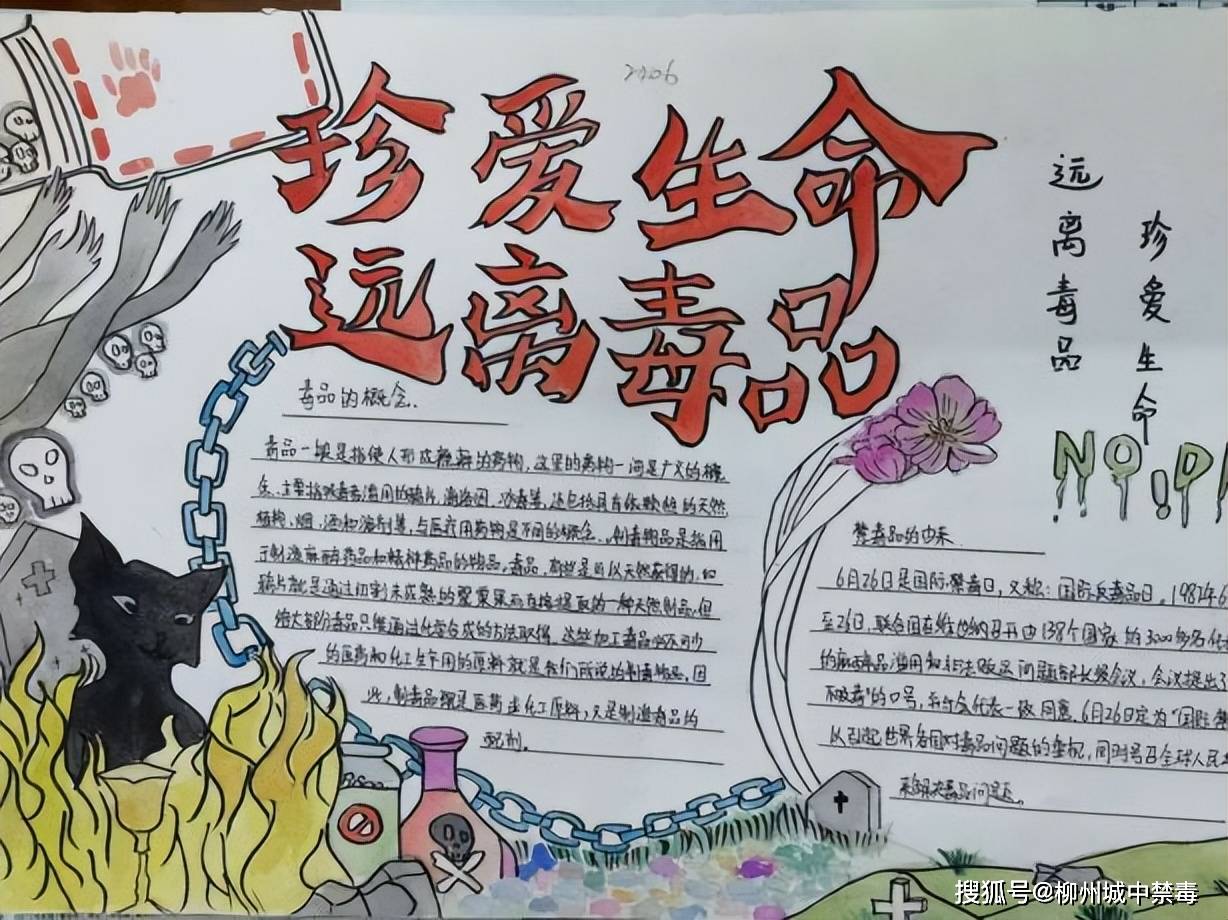 2206
珍爱生命
远离毒品
远离毒品
珍爱生命
NO!D
毒品的概念.
毒品一般是指使人形成瘾癖的药物,这里的药物一词是广义的概
念.主要指吸毒者滥用的鸦片、海洛因、冰毒等,还包括具有依赖性的天然
植物、烟、酒和溶剂等,与医疗用药物是不同的概念.制毒物品是指用
于制造麻醉药品和精神药品的物品,毒品,有些是可以天然获得的,如
鸦片就是通过切割未成熟的罂粟果而直接提取的一种天然制品,但
绝大部分毒品只能通过化学合成的方法取得.这些加工毒品必不可少
的医药和化工生产用的原料就是我们所说的制毒物品,因
此,制毒品既是医药或化工原料,又是制造毒品的
配剂.
禁毒品的由来.
6月26日是国际禁毒日,又称:国际反毒品日。1987年6
至26日,联合国在维也纳召开由138个国家的3000多名代
的麻醉品滥用和非法贩运问题部长级会议,会议提出了
不吸毒"的口号,并与会代表一致同意.6月26定为"国际禁
以引起世界各国对毒品问题的重视,同时号召全球人民
来解决毒品问题。
搜狐号@柳州城中禁毒